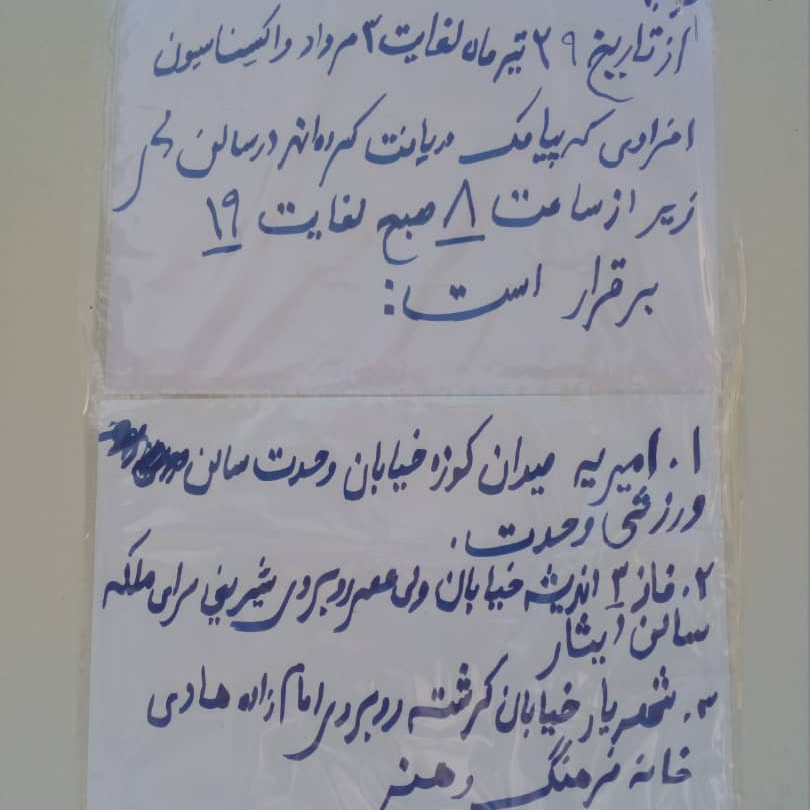 از تاریخ ۲۹ تیر ماه لغایت ۳ مرداد واکسیناسیون
افرادی که پیامک دریافت کرده‌اند در سالن های
زیر از ساعت ۸ صبح لغایت ۱۹
برقرار است:
۱. امیریه میدان کوزه خیابان وحدت سالن
ورزشی وحدت.
۲. فاز ۳ اندیشه خیابان ولی عصر روبروی شیرینی سرای ملکه
سالن ایثار
۳. شهریار خیابان کرشته روبروی امام زاده هادی
خانه فرهنگ و هنر